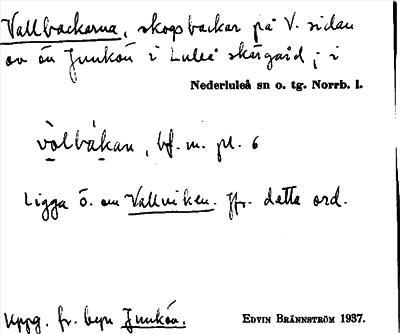 Vallbackarna, skogsbackar på V. sidan
av ön Junkön i Luleå skärgård; i
Nederluleå sn o. tg. Norrb. l.
vòlbàkan, bf. m. pl. 6
Ligga Ö. om Vallviken. Jfr. detta ord.
Uppg. fr. byn Junkön.
EDVIN BRÄNNSTRÖM 1937.